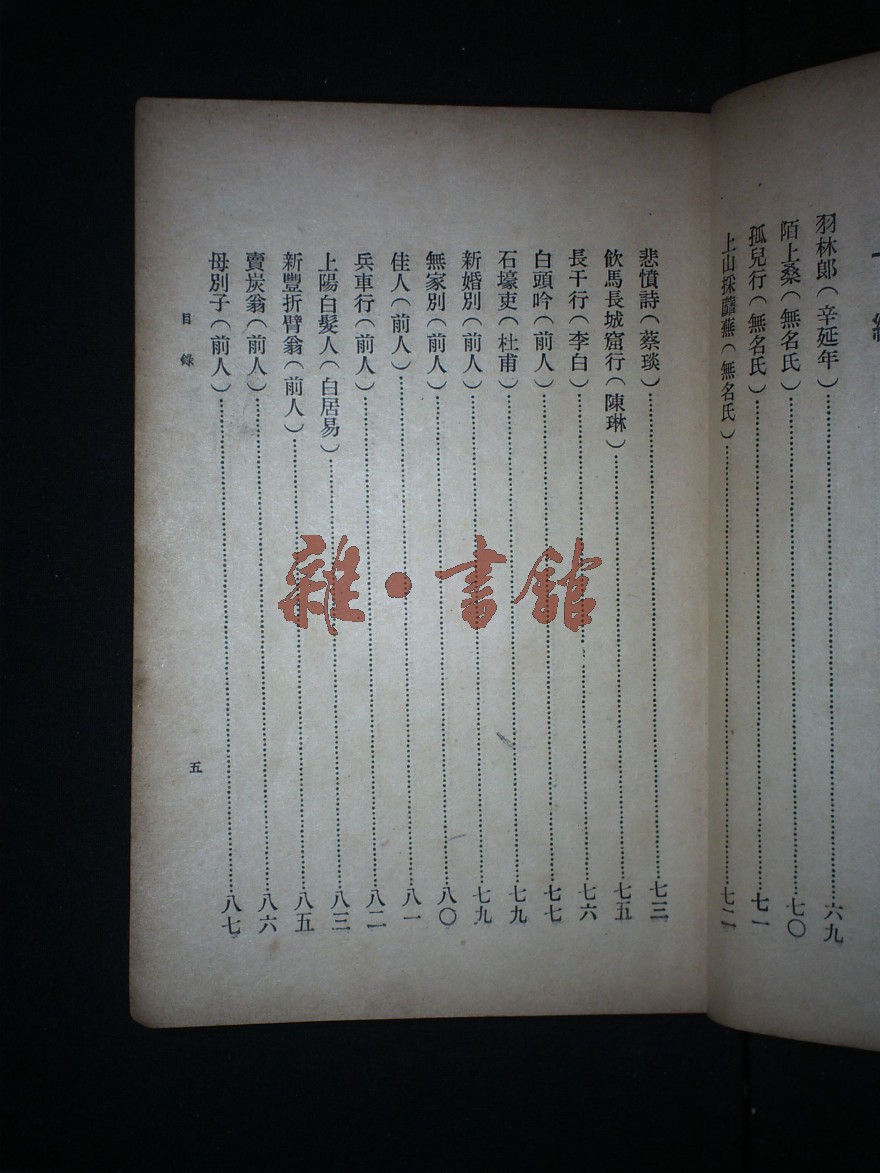 羽林郎(辛延年)……六九
陌上桑(無名氏)……七〇
孤兒行(無名氏)……七一
上山採蘼蕪(無名氏)……七二
悲憤詩(蔡琰)……七三
飲馬長城窟行(陳琳)……七五
長干行(李白)……七六
白頭吟(前人)……七七
石壕吏(杜甫)……七九
新婚別(前人)……七九
無家別(前人)……八〇
佳人(前人)……八一
兵車行(前人)……八二
上陽白髮人(白居易)……八三
新豐折臂翁(前人)……八五
賣炭翁(前人)……八六
母別子(前人)……八七
目錄
五
雜·書館